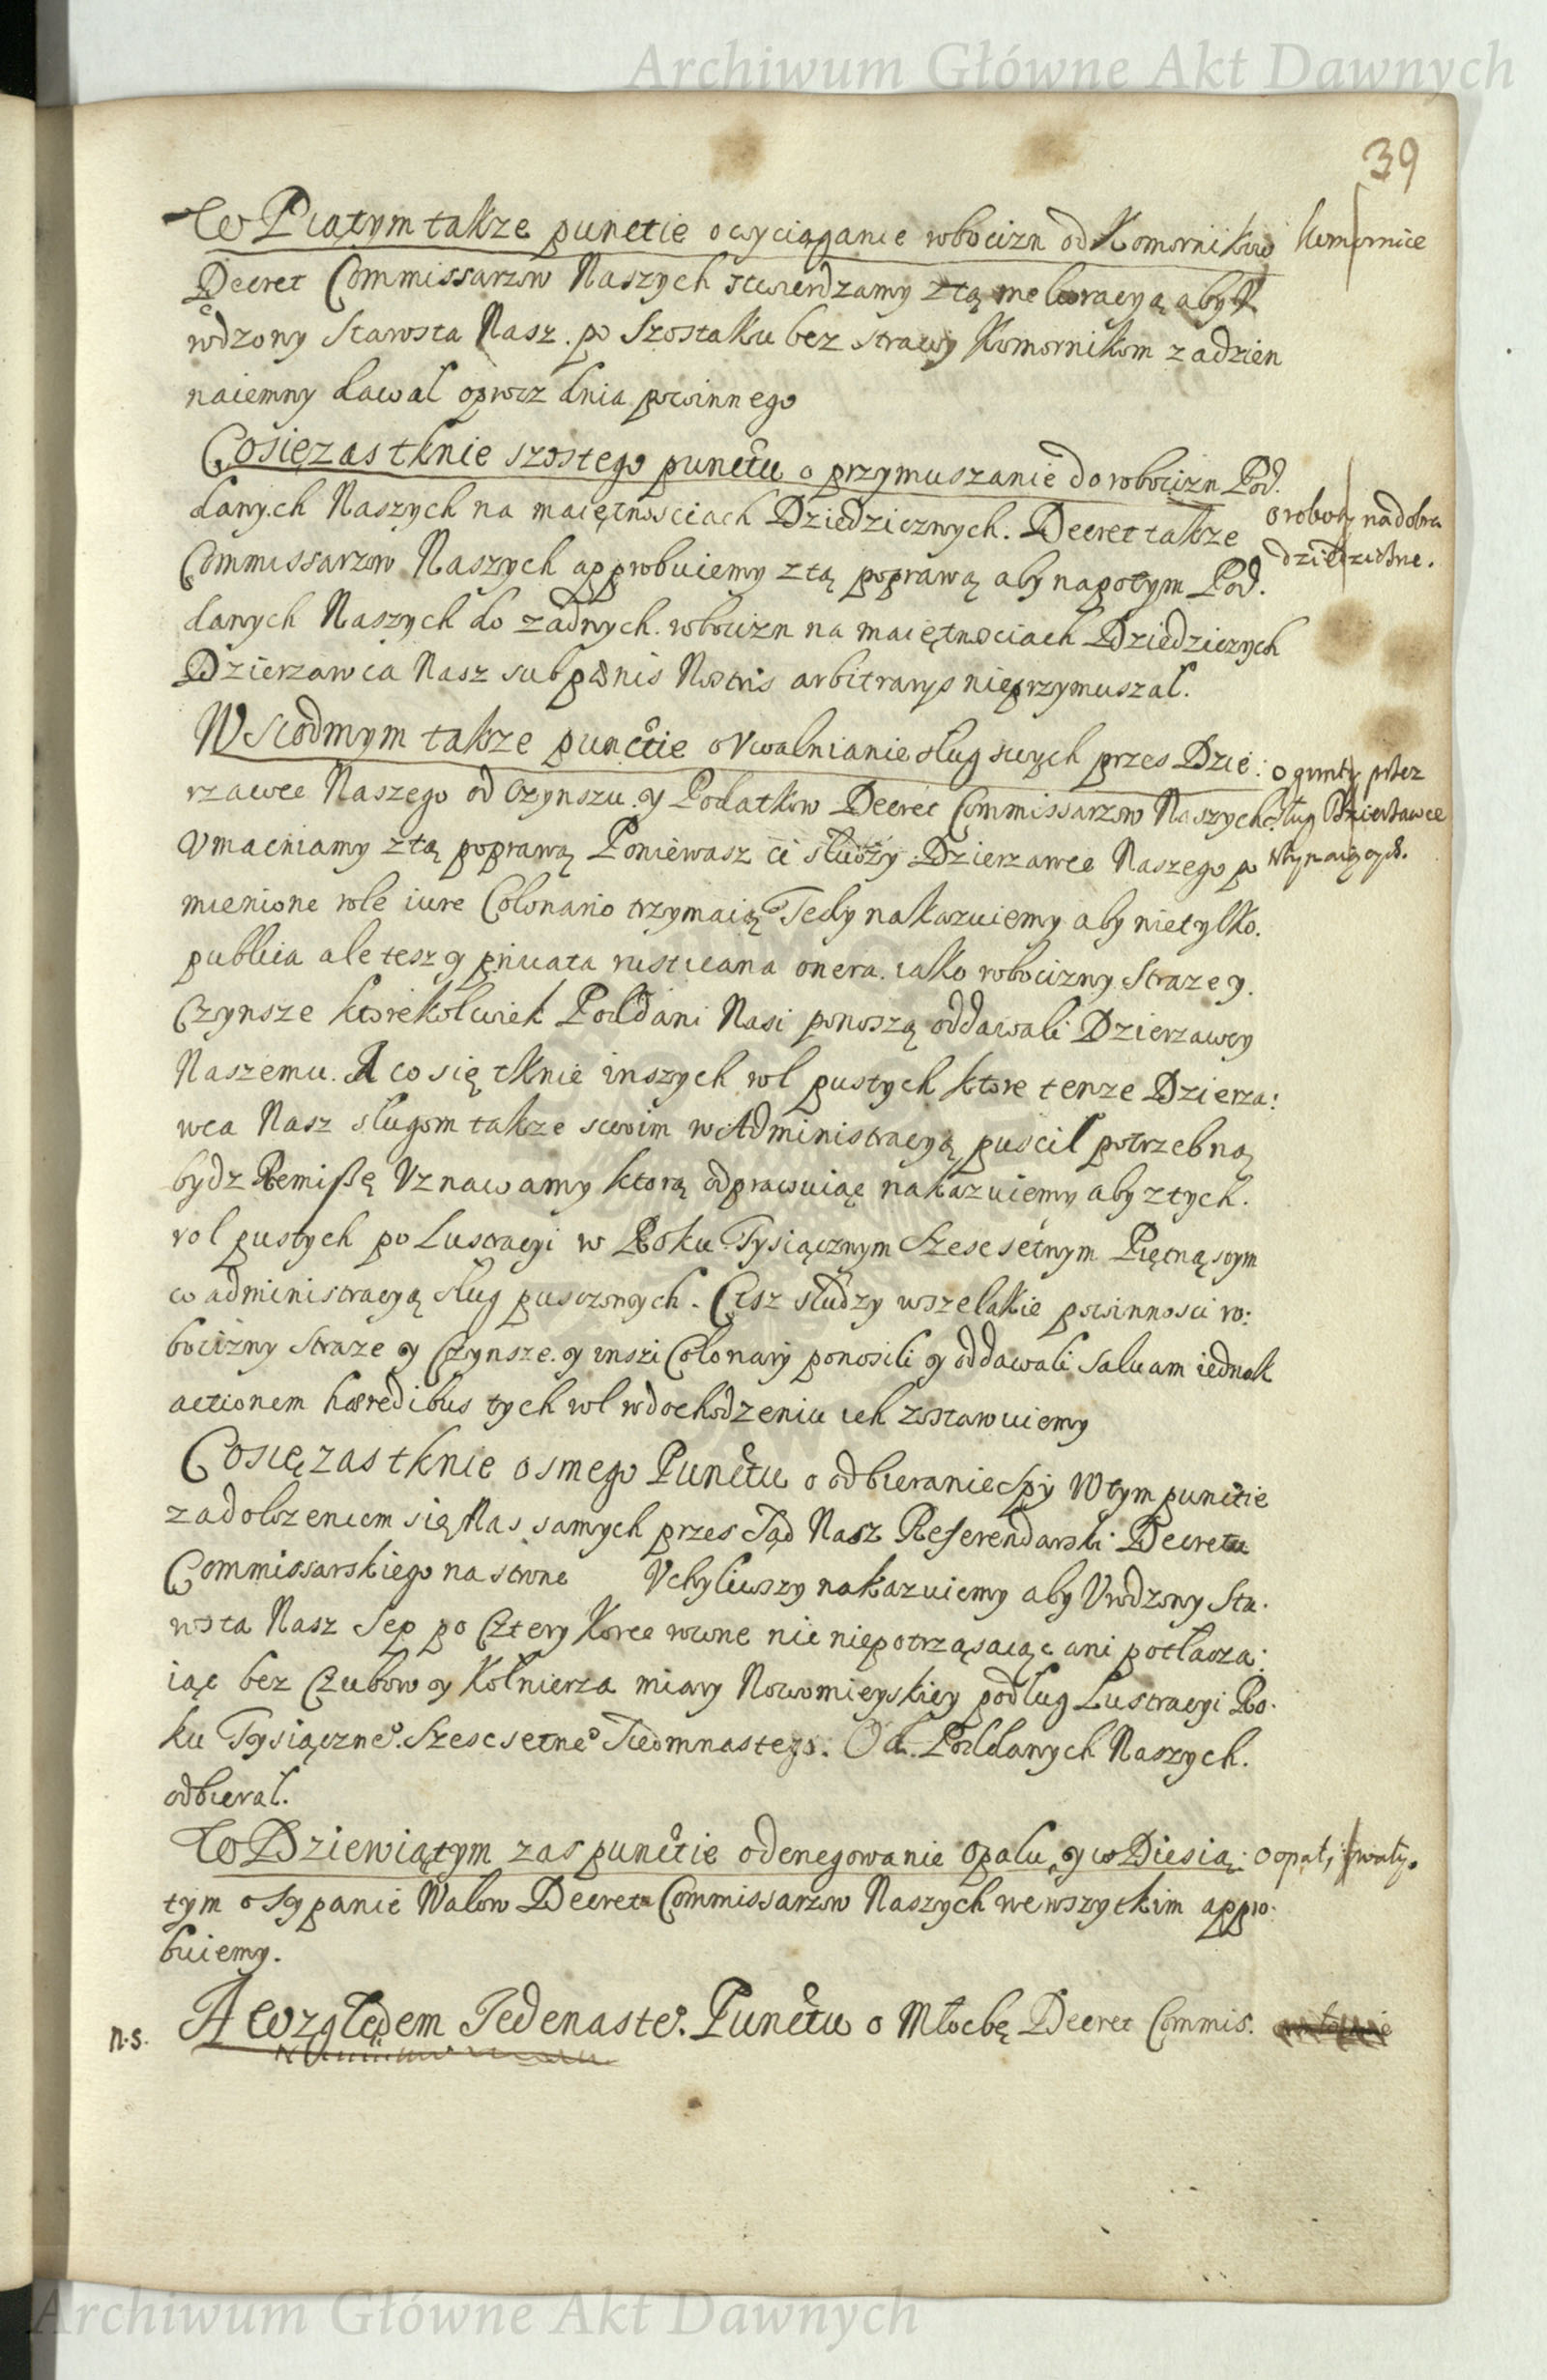 Archiwum Główne Akt Dawnych
39
W Piątym takze punctie o wyciąganie robocizn od Komornikow
komornice
Decret Commissarzow Naszych stwierdzamy z tą melioracyą aby V
rodzony Starosta Nasz. po Szostaku bez strawy Komornikom za dzien
naiemny dawal oprocz dnia powinnego
Co się zas tknie szostego punctu o przymuszanie do robocizn Pod.
danych Naszych na maiętnosciach Dziedzicznych. Decret takze
o roboty na dobra
dziedziczne.
Commissarzow Naszych approbuiemy z tą poprawą aby napotym Pod.
danych Naszych do zadnych. robocizn na maiętnosciach Dziedzicznych
Dzierzawca Nasz sub pœnis Nostris arbitrarys nieprzymuszal.
W Siodmym takze punctie o Vwalnianie slug swych przes Dzie:
o grunty przez
rzawce Naszego od Czynszu. y Podatkow Decret Commissarzow Naszych
slug Dzierzawce
Vmacniamy z tą poprawą Poniewasz ci słudzy Dzierzawce Naszego po
trzymaiących.
mienione role iure Colonario trzymaią Tedy nakazuiemy aby nietylko.
publica ale tesz y priuata rusticana onera. iako robocizny Straze y.
Czynsze ktorekolwiek Poddani Nasi ponoszą oddawali Dzierzawcy
Naszemu. A co się tknie inszych rol pustych ktore tenze Dzierza:
wca Nasz slugom takze swoim w Administracyą puscil potrzebną
bydz Remissę Vznawamy ktorą odprawuiąc nakazuiemy aby z tych.
rol pustych po Lustracyi w Roku Tysiącznym Szescsetnym Piętnąstym
w administracyą slug pusczonych. Cisz słudzy wszelakie powinnosci ro:
bocizny Straze y Czynsze. y inszi Colonarij ponosili y oddawali Saluam iednak
actionem hœredibus tych rol w dochodzeniu ich zostawuiemy
Co się zas tknie osmego Punctu o odbieranie Spy W tym punctie
za dolozeniem się Nas samych przes Sąd Nasz Referendarski Decretu
Commissarskiego na strone Vchyliwszy nakazuiemy aby Vrodzony Sta.
rosta Nasz Sep po Cztery Korce rowne nic niepotrząsaiąc ani potlacza:
iąc bez Czubow y Kolnierza miary Nowomieyskiey podlug Lustracyi Ro.
ku Tysiączneº. Szescsetneº Siedmnastego. Od. Poddanych Naszych.
odbieral.
W Dziewiątym zas punctie o denegowanie opalu, y w Dziesią:
o opał, i wały.
tym o Sypanie Walow Decreta Commissarzow Naszych we wszytkim appro.
buiemy.
n.s.
A względem Jedenasteº. Punctu o Młocbę Decret Commis.
Archiwum Główne Akt Dawnych